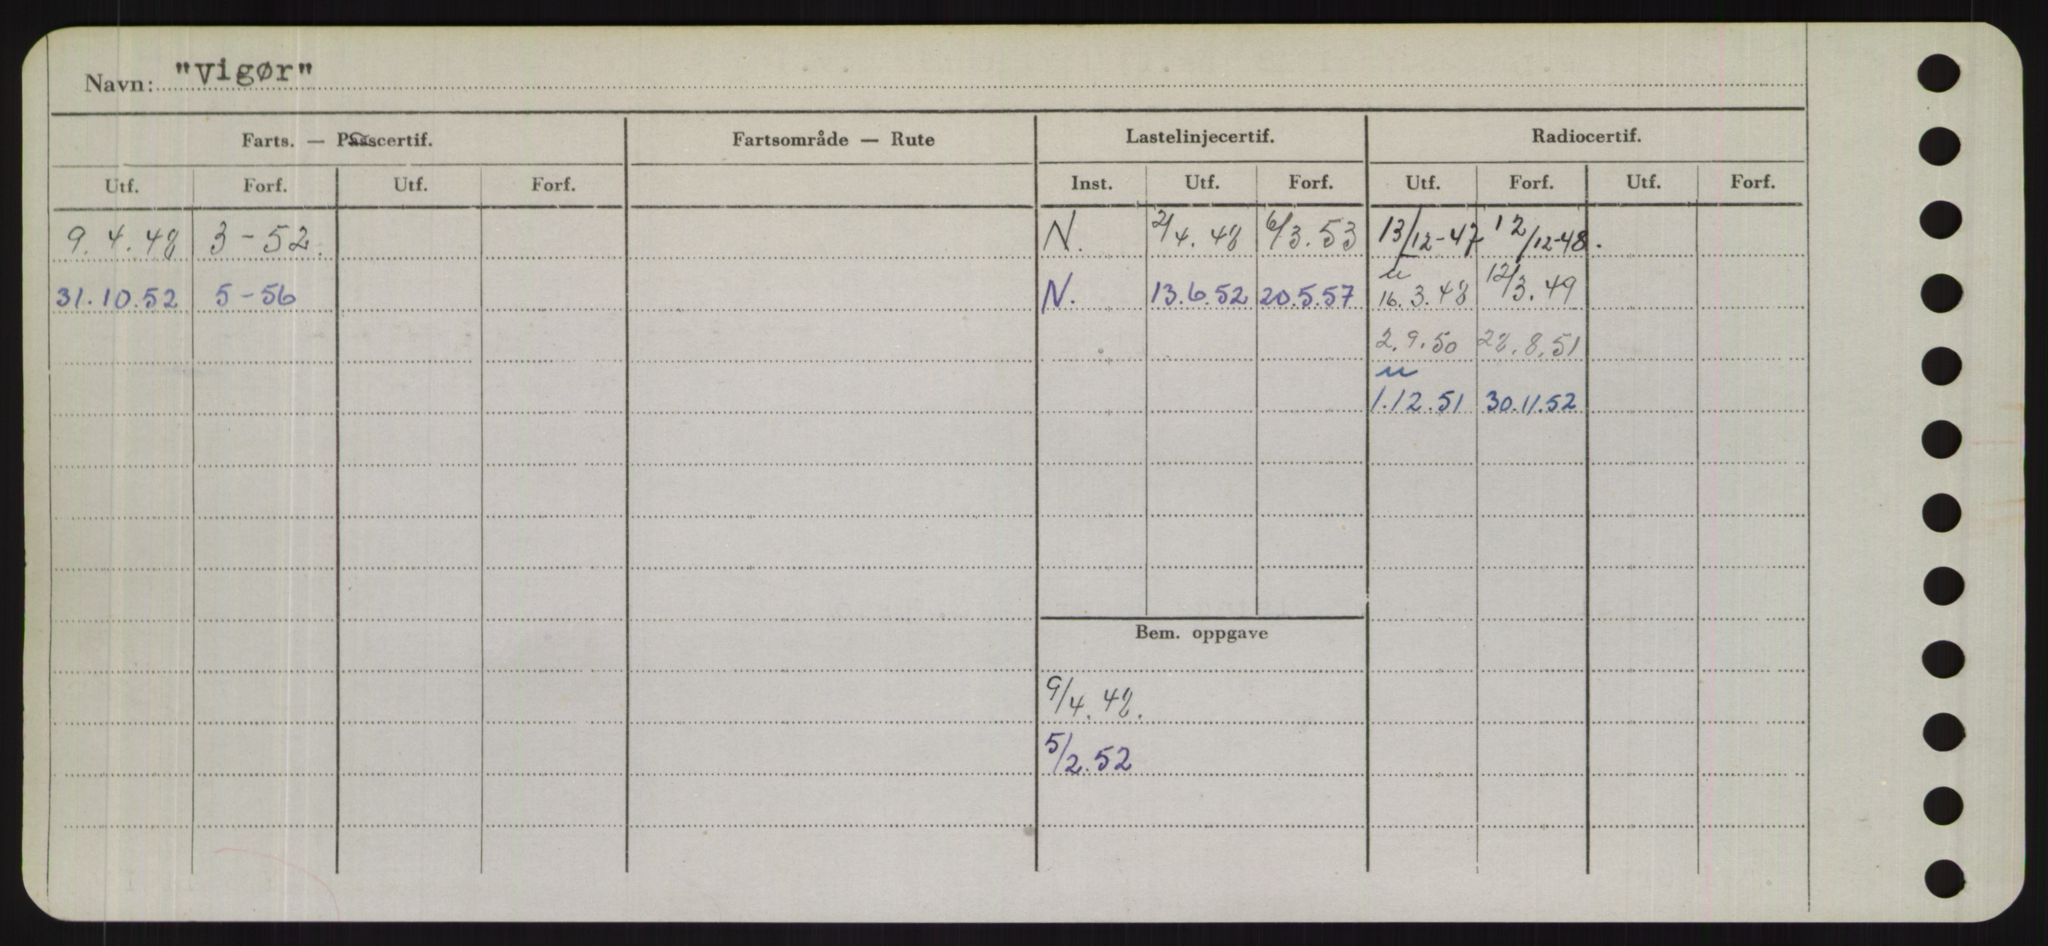 Navn: "Vigør"
Farts. — Passcertif. Fartsområde — Rute Lastelinjecertif. Radiocertif.
Utf. Forf. Utf. Forf. Inst. Utf. Forf. Utf. Forf. Utf. Forf.
9.4.48 3-52. N. 2/4.48 6/3.53 13/12-47 12/12-48.
31.10.52 5-56 N. 13.6.52 20.5.57 u 16.3.48 12/3.49
2.9.50 28.8.51
u
1.12.51 30.11.52
Bem. oppgave
9/4.48.
5/2.52